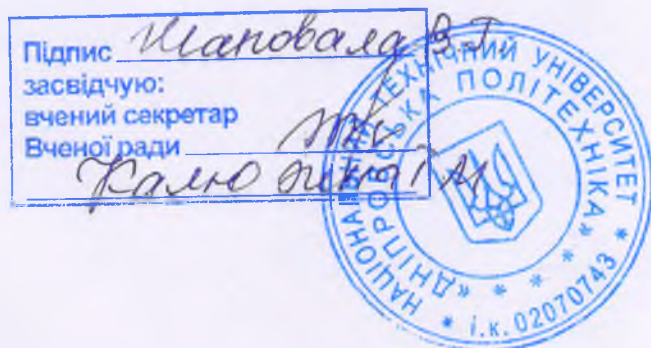 Підпис Шаповала В.Г.
засвідчую:
вчений секретар
Вченої ради
НАЦІОНАЛЬНИЙ ТЕХНІЧНИЙ УНІВЕРСИТЕТ
«ДНІПРОВСЬКА ПОЛІТЕХНІКА»
* і.к. 02070743 *